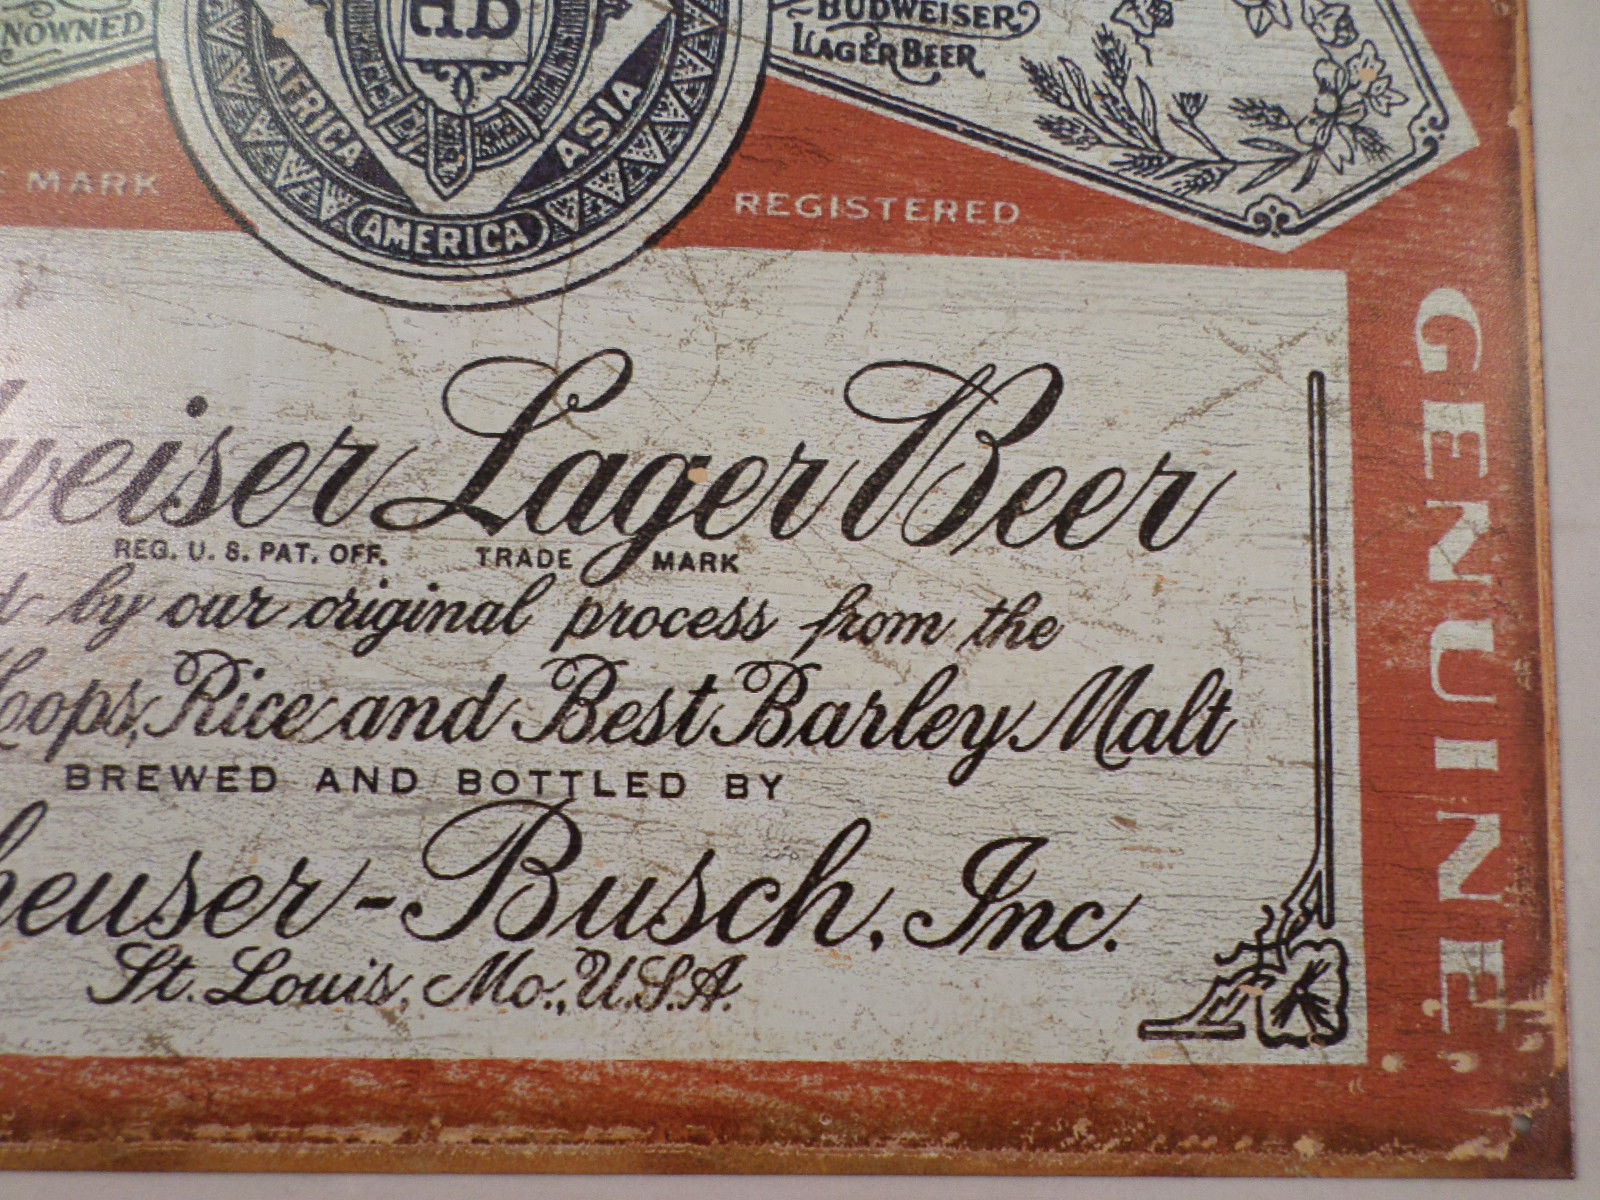 BUDWEISER
LAGER BEER
AFRICA
ASIA
AMERICA
MARK
REGISTERED
GENUINE
Lager Beer
REG. U. S. PAT. OFF. TRADE MARK
by our original process from the
Rice and Best Barley Malt
BREWED AND BOTTLED BY
Busch, Inc.
St. Louis, Mo., U.S.A.